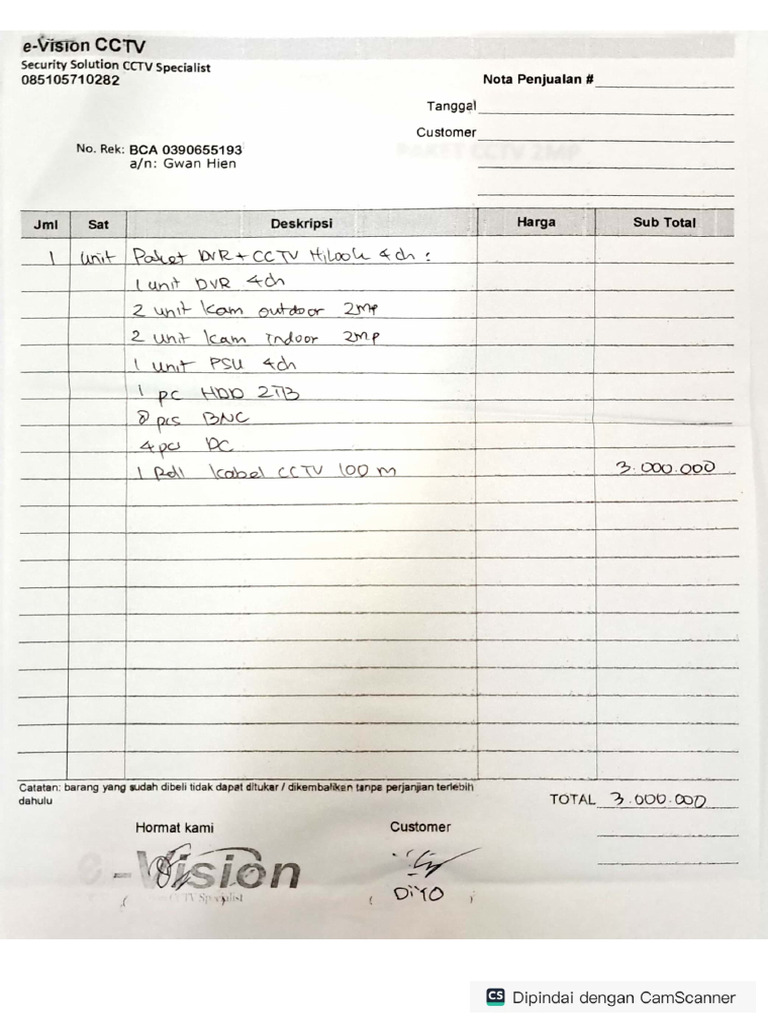 e-Vision CCTV
Security Solution CCTV Specialist
085105710282
Nota Penjualan #
Tanggal
Customer
No. Rek: BCA 0390655193
a/n: Gwan Hien
PAKET CCTV 2MP
Jml Sat Deskripsi Harga Sub Total
1 unit Paket DVR + CCTV Hilook 4 ch :
1 unit DVR 4ch
2 unit kam outdoor 2MP
2 unit kam Indoor 2MP
1 unit PSU 4ch
1 pc HDD 2TB
8 pcs BNC
4 pcs DC
1 Roll kabel CCTV 100 m 3.000.000
Catatan: barang yang sudah dibeli tidak dapat ditukar / dikembalikan tanpa perjanjian terlebih
dahulu
TOTAL 3.000.000
Hormat kami Customer
e-Vision
CCTV Specialist
( DIYO )
CS Dipindai dengan CamScanner